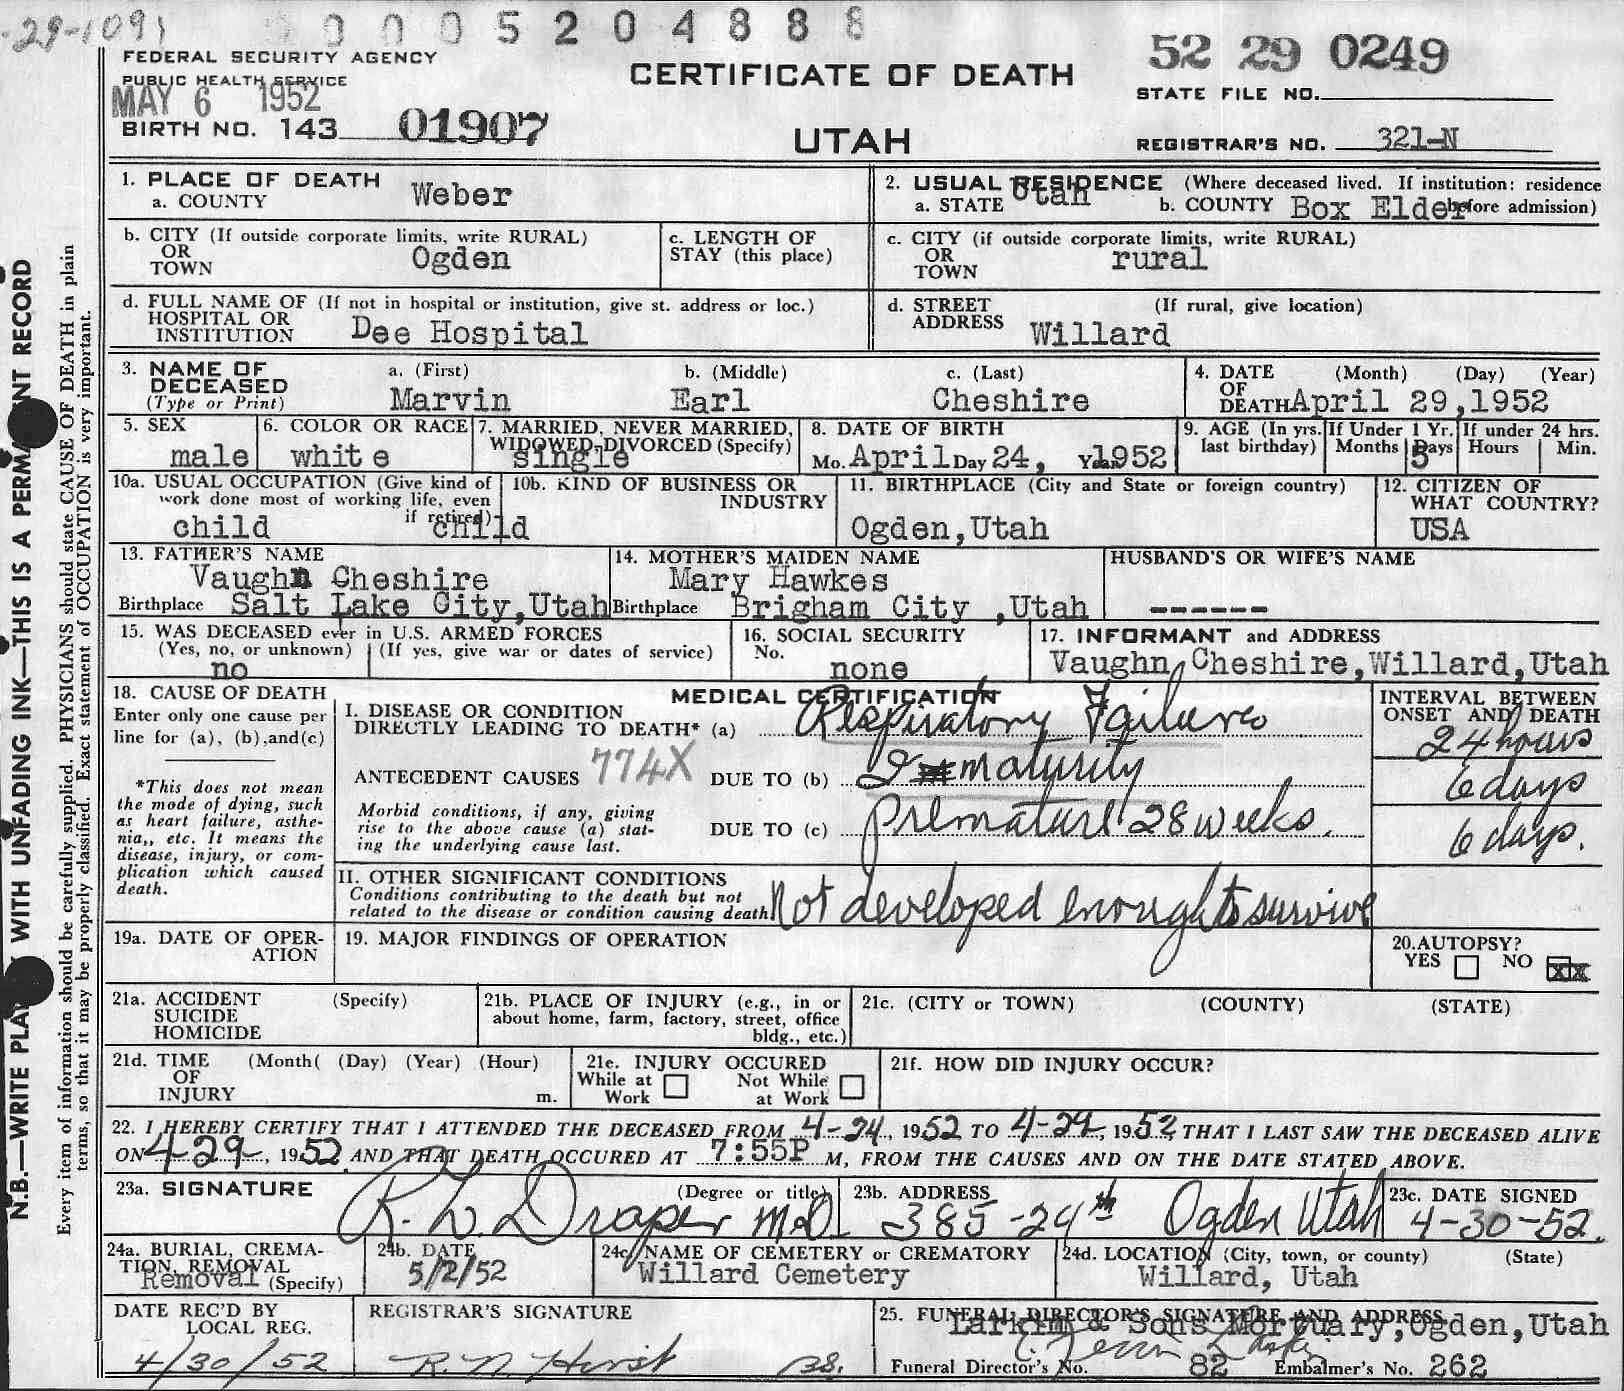 -29-109
0 0 0 5 2 0 4 8 8 8
FEDERAL SECURITY AGENCY
PUBLIC HEALTH SERVICE
MAY 6 1952
BIRTH NO. 143 01907
CERTIFICATE OF DEATH
UTAH
52 29 0249
STATE FILE NO.
REGISTRAR'S NO. 321-N
N.B.—WRITE PLA WITH UNFADING INK—THIS IS A PERMA NT RECORD
Every item of information should be carefully supplied. PHYSICIANS should state CAUSE OF DEATH in plain
terms, so that it may be properly classified. Exact statement of OCCUPATION is very important.
1. PLACE OF DEATH
a. COUNTY Weber
2. USUAL RESIDENCE (Where deceased lived. If institution: residence
a. STATE Utah b. COUNTY Box Elder before admission)
b. CITY (If outside corporate limits, write RURAL)
OR
TOWN Ogden
c. LENGTH OF
STAY (this place)
c. CITY (if outside corporate limits, write RURAL)
OR
TOWN rural
d. FULL NAME OF (If not in hospital or institution, give st. address or loc.)
HOSPITAL OR
INSTITUTION Dee Hospital
d. STREET (If rural, give location)
ADDRESS Willard
3. NAME OF a. (First) b. (Middle) c. (Last)
DECEASED
(Type or Print) Marvin Earl Cheshire
4. DATE (Month) (Day) (Year)
OF
DEATH April 29,1952
5. SEX
male
6. COLOR OR RACE
white
7. MARRIED, NEVER MARRIED,
WIDOWED, DIVORCED (Specify)
single
8. DATE OF BIRTH
Mo. April Day 24, Year 1952
9. AGE (In yrs. last birthday)
If Under 1 Yr.
Months Days
5
If under 24 hrs.
Hours Min.
10a. USUAL OCCUPATION (Give kind of
work done most of working life, even
if retired)
child
10b. KIND OF BUSINESS OR
INDUSTRY
child
11. BIRTHPLACE (City and State or foreign country)
Ogden,Utah
12. CITIZEN OF
WHAT COUNTRY?
USA
13. FATHER'S NAME
Vaughn Cheshire
Birthplace Salt Lake City,Utah
14. MOTHER'S MAIDEN NAME
Mary Hawkes
Birthplace Brigham City ,Utah
HUSBAND'S OR WIFE'S NAME
------
15. WAS DECEASED ever in U.S. ARMED FORCES
(Yes, no, or unknown) (If yes, give war or dates of service)
no
16. SOCIAL SECURITY
No.
none
17. INFORMANT and ADDRESS
Vaughn Cheshire,Willard,Utah
18. CAUSE OF DEATH
Enter only one cause per
line for (a), (b),and(c)
*This does not mean
the mode of dying, such
as heart failure, asthe-
nia,, etc. It means the
disease, injury, or com-
plication which caused
death.
MEDICAL CERTIFICATION
I. DISEASE OR CONDITION
DIRECTLY LEADING TO DEATH* (a) Respiratory Failure
ANTECEDENT CAUSES 774X DUE TO (b) Immaturity
Morbid conditions, if any, giving
rise to the above cause (a) stat-
ing the underlying cause last.
DUE TO (c) premature 28 weeks.
INTERVAL BETWEEN
ONSET AND DEATH
24 hours
6 days
6 days.
II. OTHER SIGNIFICANT CONDITIONS
Conditions contributing to the death but not
related to the disease or condition causing death
Not developed enough to survive
19a. DATE OF OPER-
ATION
19. MAJOR FINDINGS OF OPERATION
20.AUTOPSY?
YES NO XX
21a. ACCIDENT (Specify)
SUICIDE
HOMICIDE
21b. PLACE OF INJURY (e.g., in or
about home, farm, factory, street, office
bldg., etc.)
21c. (CITY or TOWN) (COUNTY) (STATE)
21d. TIME (Month( (Day) (Year) (Hour)
OF
INJURY m.
21e. INJURY OCCURED
While at Work Not While at Work
21f. HOW DID INJURY OCCUR?
22. I HEREBY CERTIFY THAT I ATTENDED THE DECEASED FROM 4-24, 1952 TO 4-29, 1952, THAT I LAST SAW THE DECEASED ALIVE
ON 4-29, 1952 AND THAT DEATH OCCURED AT 7:55P M, FROM THE CAUSES AND ON THE DATE STATED ABOVE.
23a. SIGNATURE (Degree or title)
R. L. Draper M.D.
23b. ADDRESS
385-24th Ogden Utah
23c. DATE SIGNED
4-30-52.
24a. BURIAL, CREMA-
TION, REMOVAL
Removal (Specify)
24b. DATE
5/2/52
24c. NAME OF CEMETERY or CREMATORY
Willard Cemetery
24d. LOCATION (City, town, or county) (State)
Willard, Utah
DATE REC'D BY
LOCAL REG.
4/30/52
REGISTRAR'S SIGNATURE
R. N. Hirst
25. FUNERAL DIRECTOR'S SIGNATURE AND ADDRESS
Larkin & Sons Mortuary,Ogden,Utah
Funeral Director's No. 82 Embalmer's No. 262